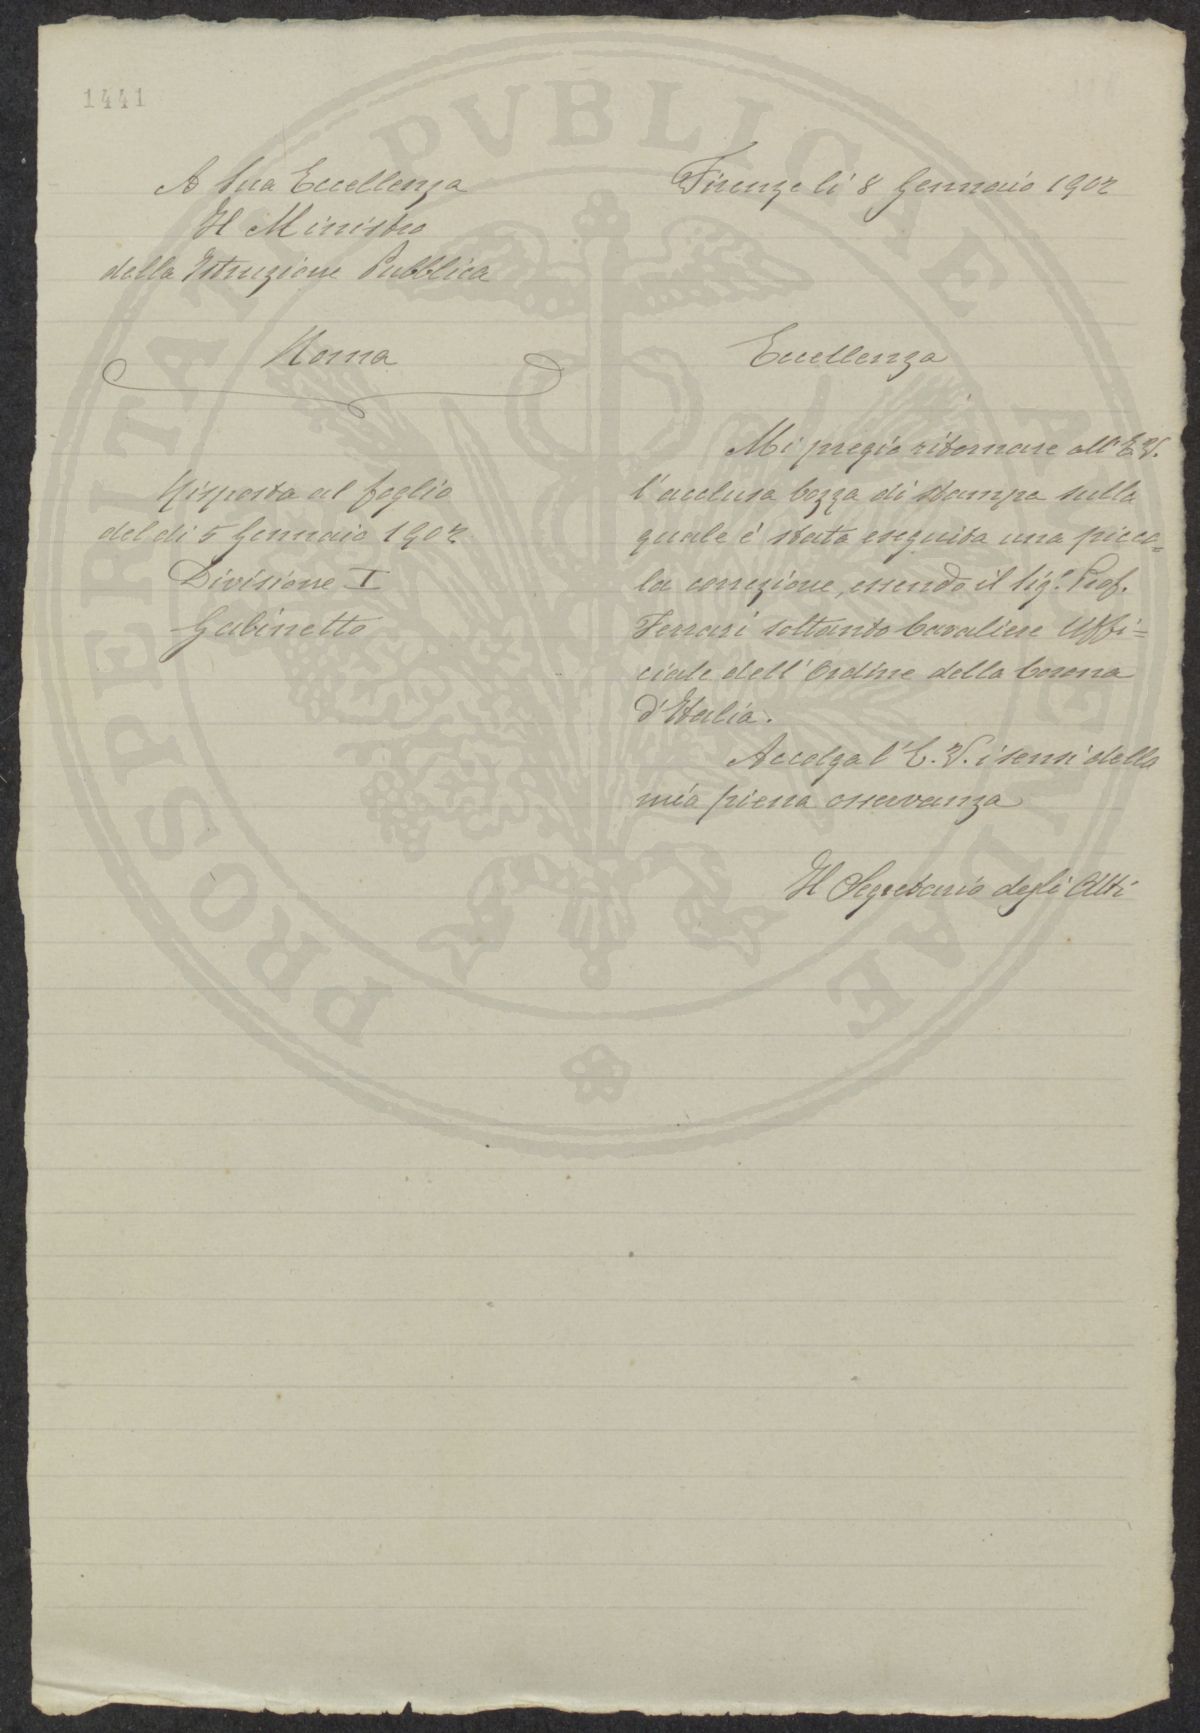 1441
A Sua Eccellenza
Il Ministro
della Istruzione Pubblica
Roma
Risposta al foglio
del dì 5 Gennaio 1902
Divisione I
Gabinetto
Firenze lì 8 Gennaio 1902
Eccellenza
Mi pregio ritornare all'E.V.
l'acclusa bozza di stampa sulla
quale è stata eseguita una picco=
la correzione, essendo il Sig. Prof.
Ferrari soltanto Cavaliere Uffi=
ciale dell'Ordine della Corona
d'Italia.
Accolga l'E.V. i sensi della
mia piena osservanza
Il Segretario degli Atti
PROSPERITATI PVBLICAE AVGENDAE